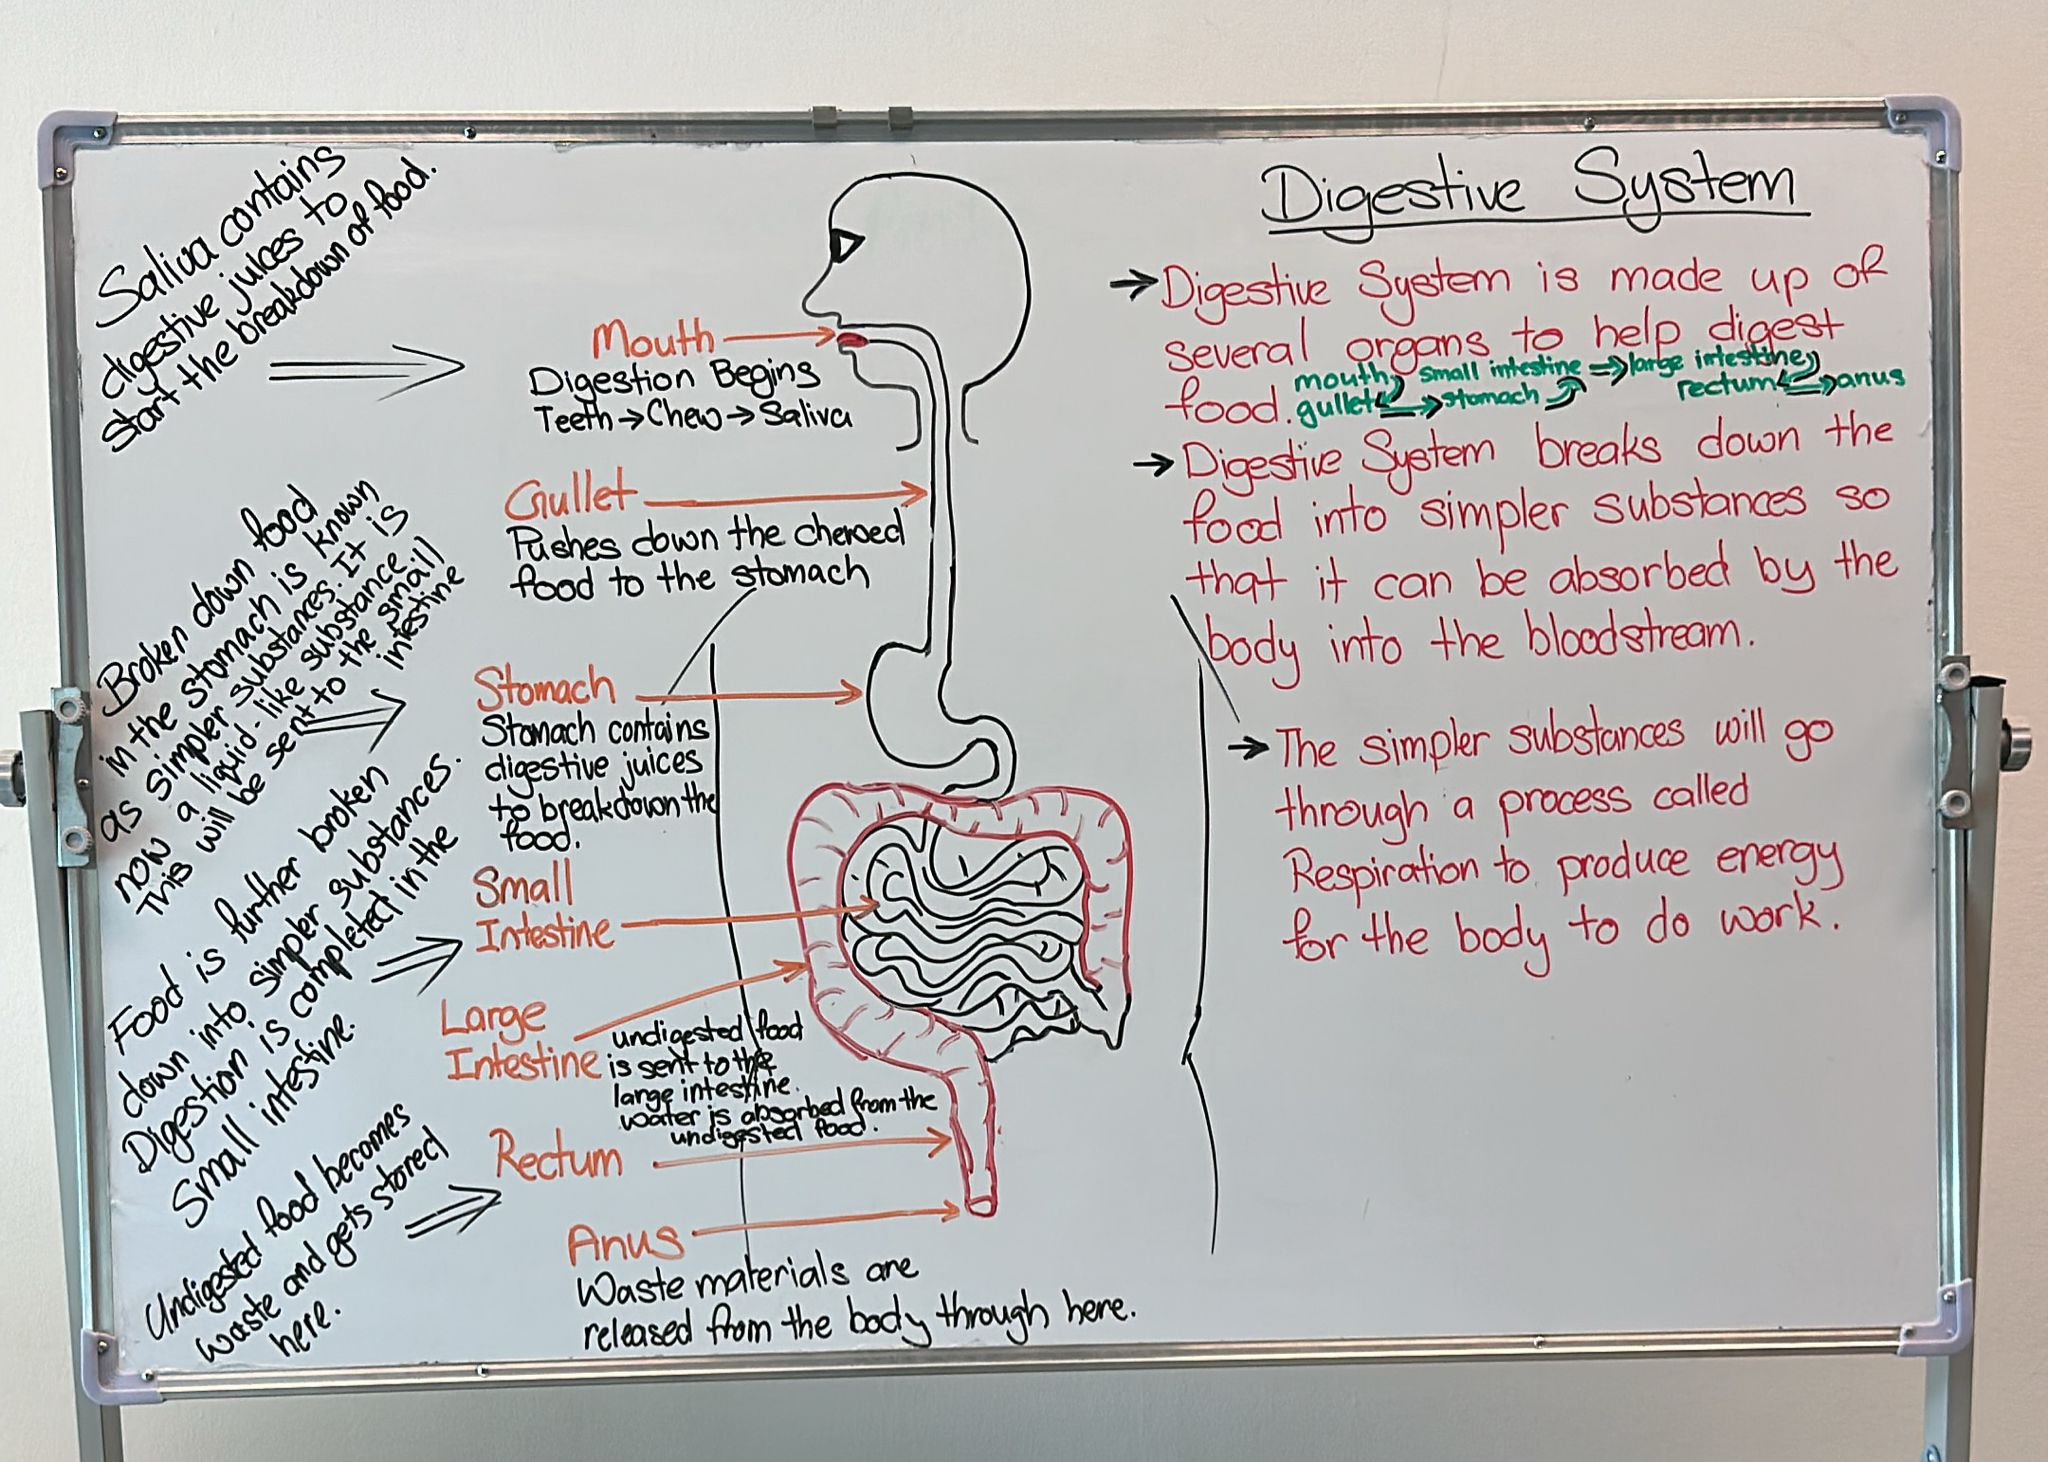 Digestive System
→ Digestive System is made up of
several organs to help digest
food.
mouth small intestine ⇒ large intestine
gullet → stomach rectum → anus
→ Digestive System breaks down the
food into simpler substances so
that it can be absorbed by the
body into the bloodstream.
→ The simpler substances will go
through a process called
Respiration to produce energy
for the body to do work.
Saliva contains
digestive juices to
start the breakdown of food.
Mouth
Digestion Begins
Teeth → Chew → Saliva
Gullet
Pushes down the chewed
food to the stomach
Broken down food
in the stomach is known
as simpler substances. It is
now a liquid-like substance
This will be sent to the small
intestine
Stomach
Stomach contains
digestive juices
to breakdown the
food.
Food is further broken
down into simpler substances.
Digestion is completed in the
Small intestine.
Small
Intestine
Large
Intestine
undigested food
is sent to the
large intestine.
Water is absorbed from the
undigested food.
Undigested food becomes
waste and gets stored
here.
Rectum
Anus
Waste materials are
released from the body through here.